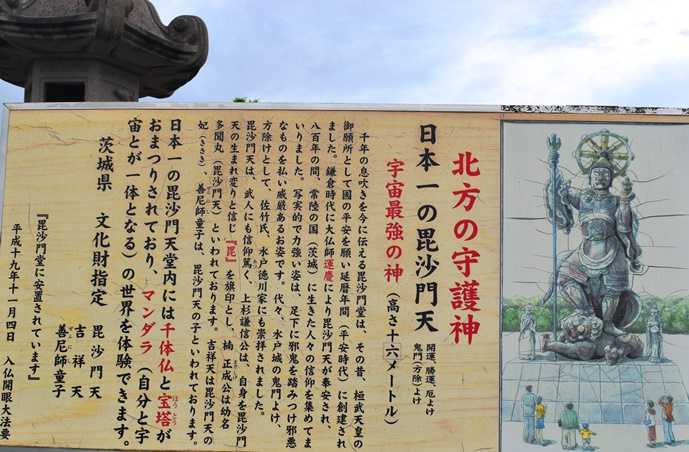 北方の守護神
日本一の毘沙門天
開運、勝運、厄よけ
鬼門(方除)よけ
宇宙最強の神(高さ十六メートル)
千年の息吹きを今に伝える毘沙門堂は、その昔、桓武天皇の
御願所として國の平安を願い延暦年間(平安時代)に創建され
ました。鎌倉時代に大仏師運慶により毘沙門天が奉安され、
八百年の間、常陸の国(茨城)に生きた人々の信仰を集めてま
いりました。写実的で力強い姿は、足下に邪鬼を踏みつけ邪悪
なものを払い威厳あるお姿です。代々、水戸城の鬼門よけ、
方除けとして、佐竹氏、水戸徳川家にも崇拝されました。
毘沙門天は、武人にも信仰篤く、上杉謙信公は、自身を毘沙門
天の生まれ変りと信じ『毘』を旗印とし、楠 正成公は幼名
多聞丸(毘沙門天)といわれております。吉祥天は毘沙門天の
妃(きさき)、善尼師童子は、毘沙門天の子といわれております。
日本一の毘沙門天堂内には千体仏と宝塔が
ほうとう
おまつりされており、マンダラ(自分と宇
宙とが一体となる)の世界を体験できます。
茨城県 文化財指定
毘沙門天
吉祥天
善尼師童子
『毘沙門堂に安置されています』
平成十九年十一月四日 入仏開眼大法要